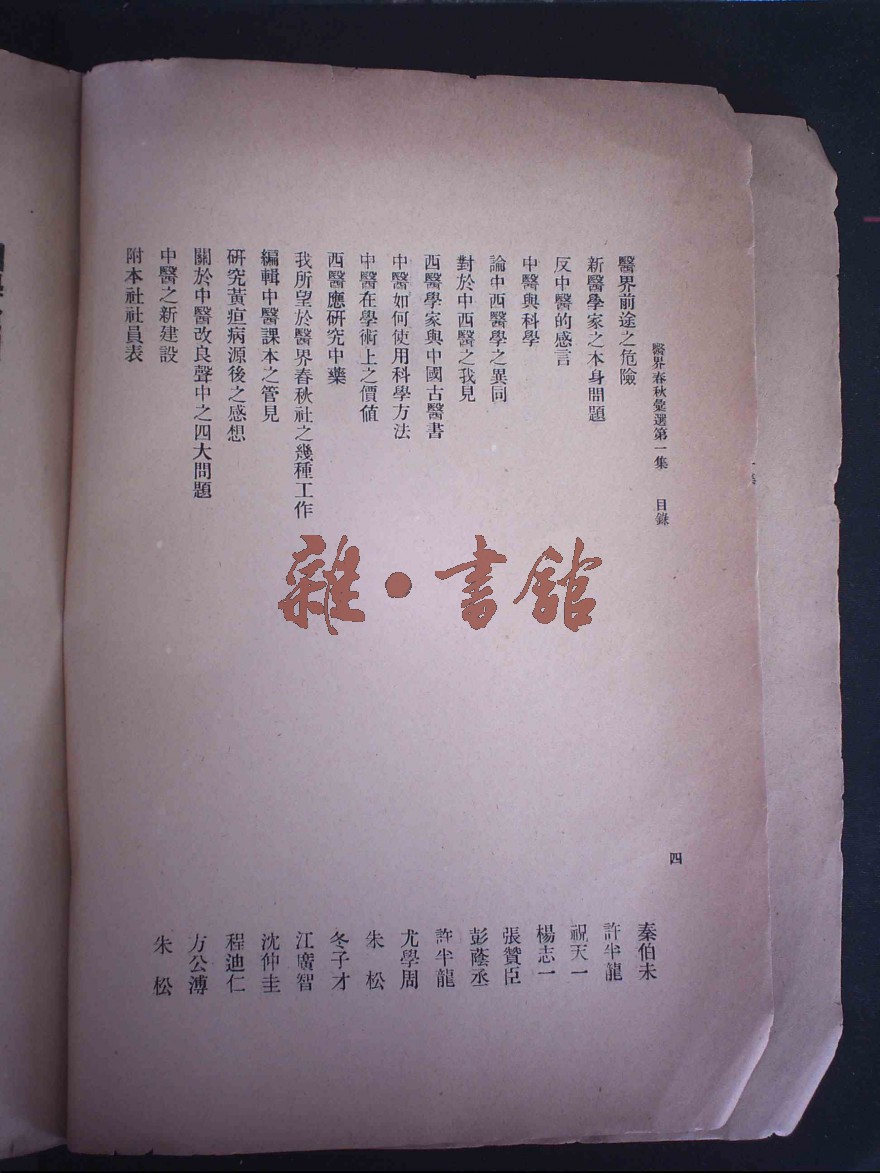 醫界春秋彙選第一集 目錄 四
醫界前途之危險 秦伯未
新醫學家之本身問題 許半龍
反中醫的感言 祝天一
中醫與科學 楊志一
論中西醫學之異同 張贊臣
對於中西醫之我見 彭蔭丞
西醫學家與中國古醫書 許半龍
中醫如何使用科學方法 尤學周
中醫在學術上之價值 朱松
西醫應研究中藥 冬子才
我所望於醫界春秋社之幾種工作 江廣智
編輯中醫課本之管見 沈仲圭
研究黃疸病源後之感想 程迪仁
關於中醫改良聲中之四大問題 方公溥
中醫之新建設 朱松
附本社社員表
雜·書館